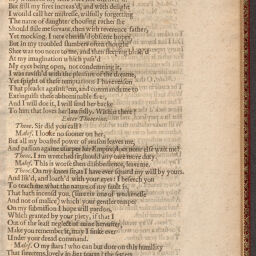 But still my first increas'd, and with delight
I would call her mistresse, wilfully forgetting
The name of daughter, choosing rather she
Should stile me servant, then with reverence father,
Yet mocking, I nere cherish'd obscene hopes,
But in my troubled slumbers often thought
She was too neere to me, and then sleeping blush'd
At my imagination which pass'd
My eyes being open, not condemning it,
I was ravish'd with the pleasure of the dreame,
Yet spight of these temptations I have reason
That pleades against 'em, and commands me to
Extinguish these abhominable fires,
And I will doe it, I will send her backe
To him that loves her lawfully. Within there?
Enter Theocrine.
Theoc. Sir did you call?
Malef. I looke no sooner on her,
But all my boasted power of reason leaves me,
And passion againe usurpes her Empire, does none else wait me?
Theoc. I am wretched sir, should any owe more duty.
Malef. This is worse then disobedience, leave me.
Theoc. On my knees sir, as I have ever squar'd my will by yours,
And lik'd, and loath'd with your eyes: I beseech you
To teach me what the nature of my fault is,
That hath incens'd you, (sure tis one of weaknesse
And not of malice) which your gentler temper
On my submission I hope will pardon,
Which granted by your piety, if that I
Out of the least neglect of mine hereafter,
Make you remember it, may I sinke ever
Under your dread command.
Malef. O my stars! who can but dote on this humility
That sweetens, lovely in her teares! the fetters